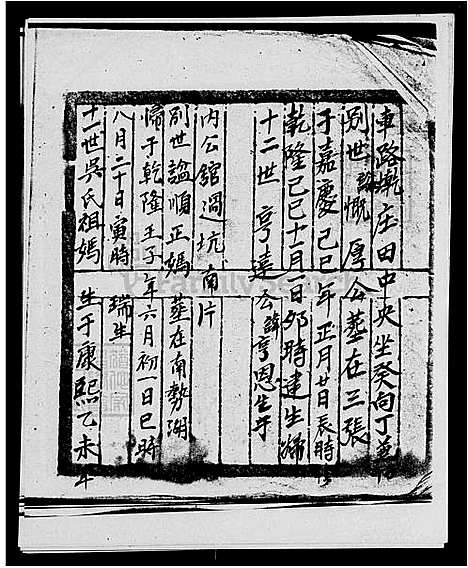 車路墘庄田中央坐癸向丁兼
別世諡慨厚公葬在三張
于嘉慶己巳年正月廿日辰時
乾隆己巳十一月一日卯時建生歸
十二世亨達公諱亨恩生于
內公館過坑南片
別世諡順正媽葬在南勢湖
歸于乾隆壬子年六月初一日巳時
八月二十日寅時 瑞生
十一世吳氏祖媽 生于康熙乙未年
FamilySearch